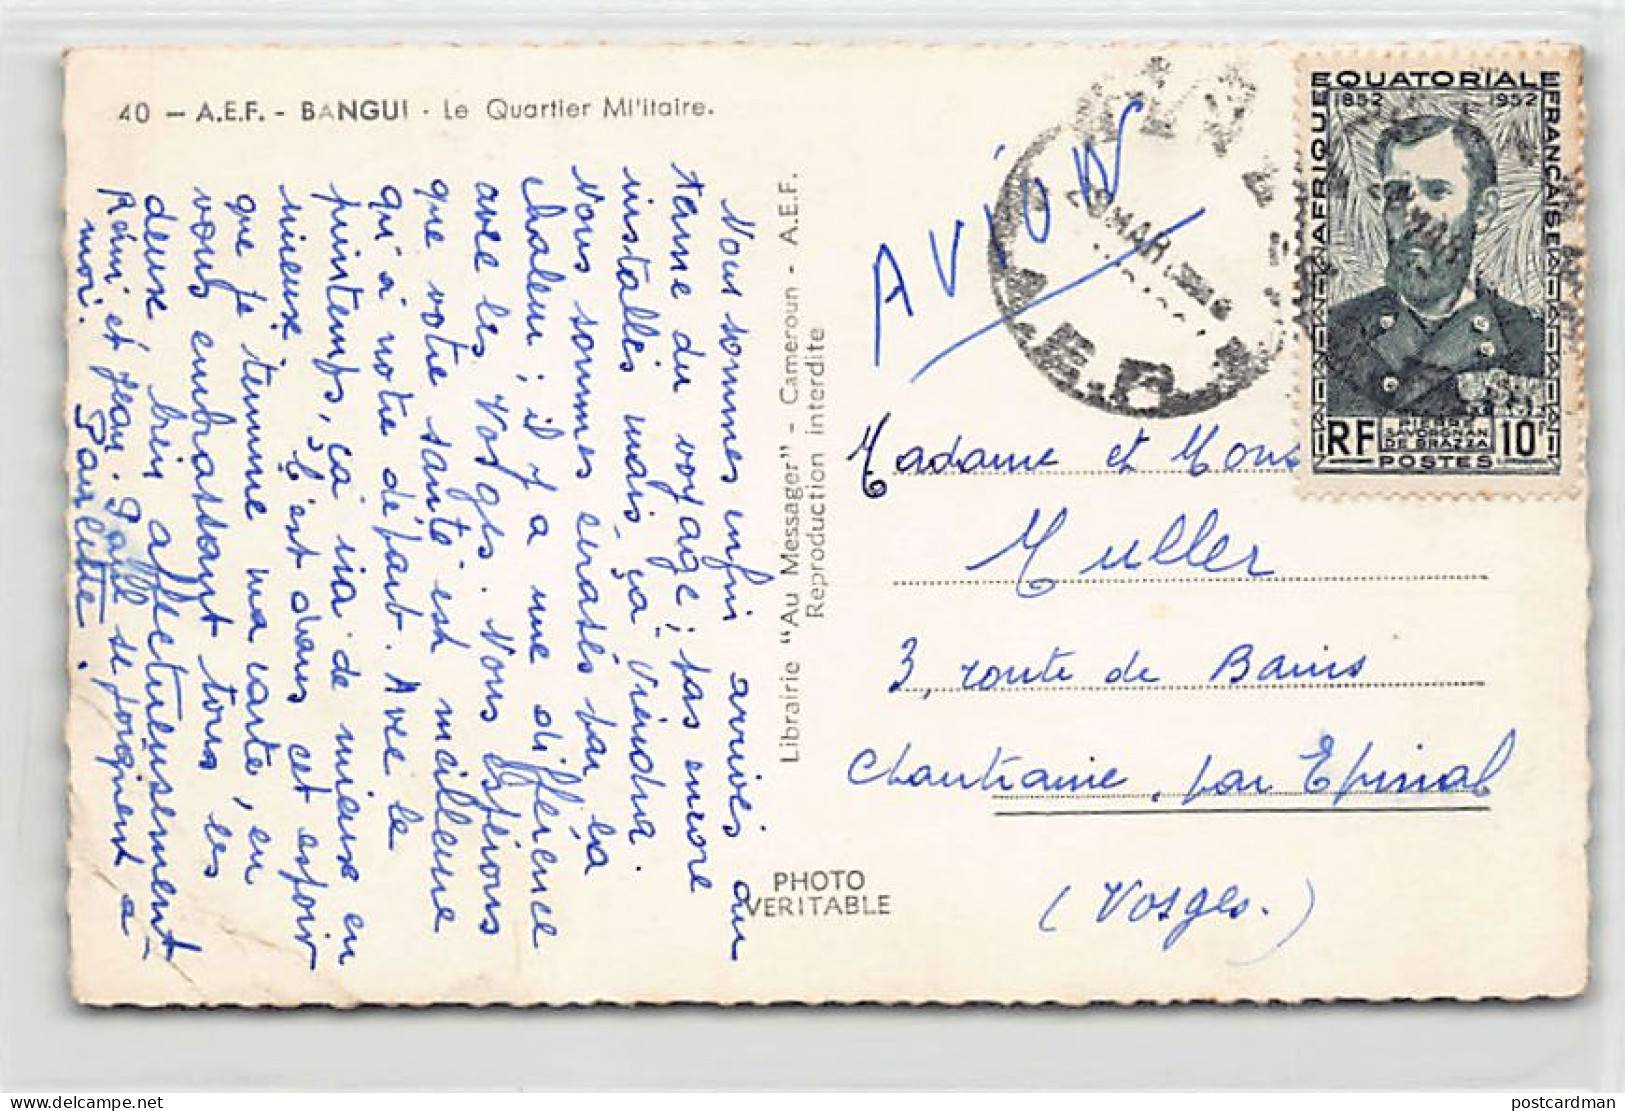 40 — A.E.F. - BANGUI - Le Quartier Militaire.
Nous sommes enfin arrivés au
terme du voyage ; pas encore
installés mais, ça viendra.
Nous sommes écrasés par la
chaleur ; il y a une différence
avec les Vosges. Nous espérons
que votre santé est meilleure
qu'à notre départ. Avec le
printemps, ça ira de mieux en
mieux. C'est dans cet espoir
que je termine ma carte, en
vous embrassant tous les
deux bien affectueusement
Rémi et Jean-Paul se joignent à
moi. Paulette.
Librairie "Au Messager" - Cameroun - A.E.F.
Reproduction interdite
PHOTO
VERITABLE
AVION
MAR
A.E.F.
AFRIQUE EQUATORIALE FRANÇAISE
1852 1952
PIERRE
SAVORGNAN
DE BRAZZA
RF POSTES 10F
Madame et Mons
Muller
3, route de Bains
Chantraine, par Epinal
(Vosges.)
postcardman